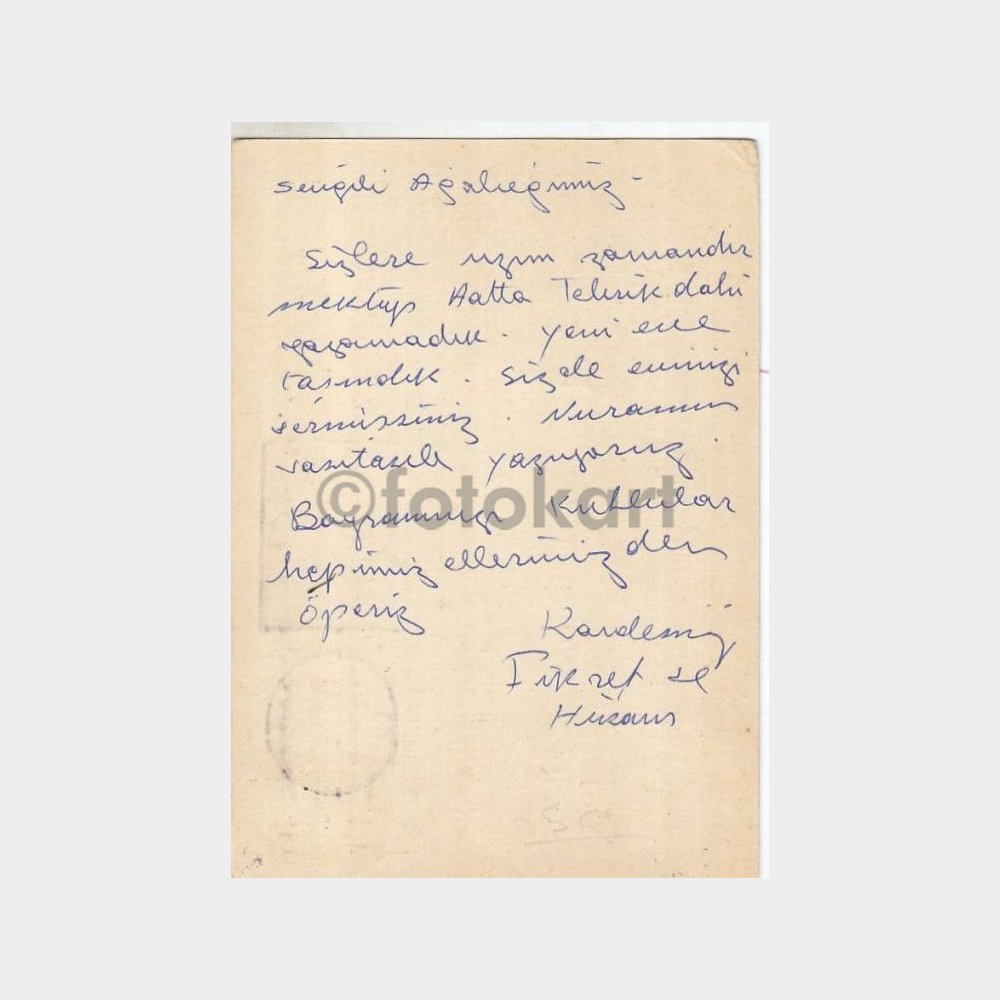 Sevgili Ağabeğimiz -
Sizlere uzun zamandır
mektup Hatta Tebrik dahi
yazamadık. Yeni eve
taşındık. Sizde evinizi
vermişsiniz. Nuranın
vasıtasıle yazıyoruz.
Bayramınızı Kutlular
hepimiz ellerinizden
öperiz
Kardeşiniz
Fikret ve
©fotokart
50